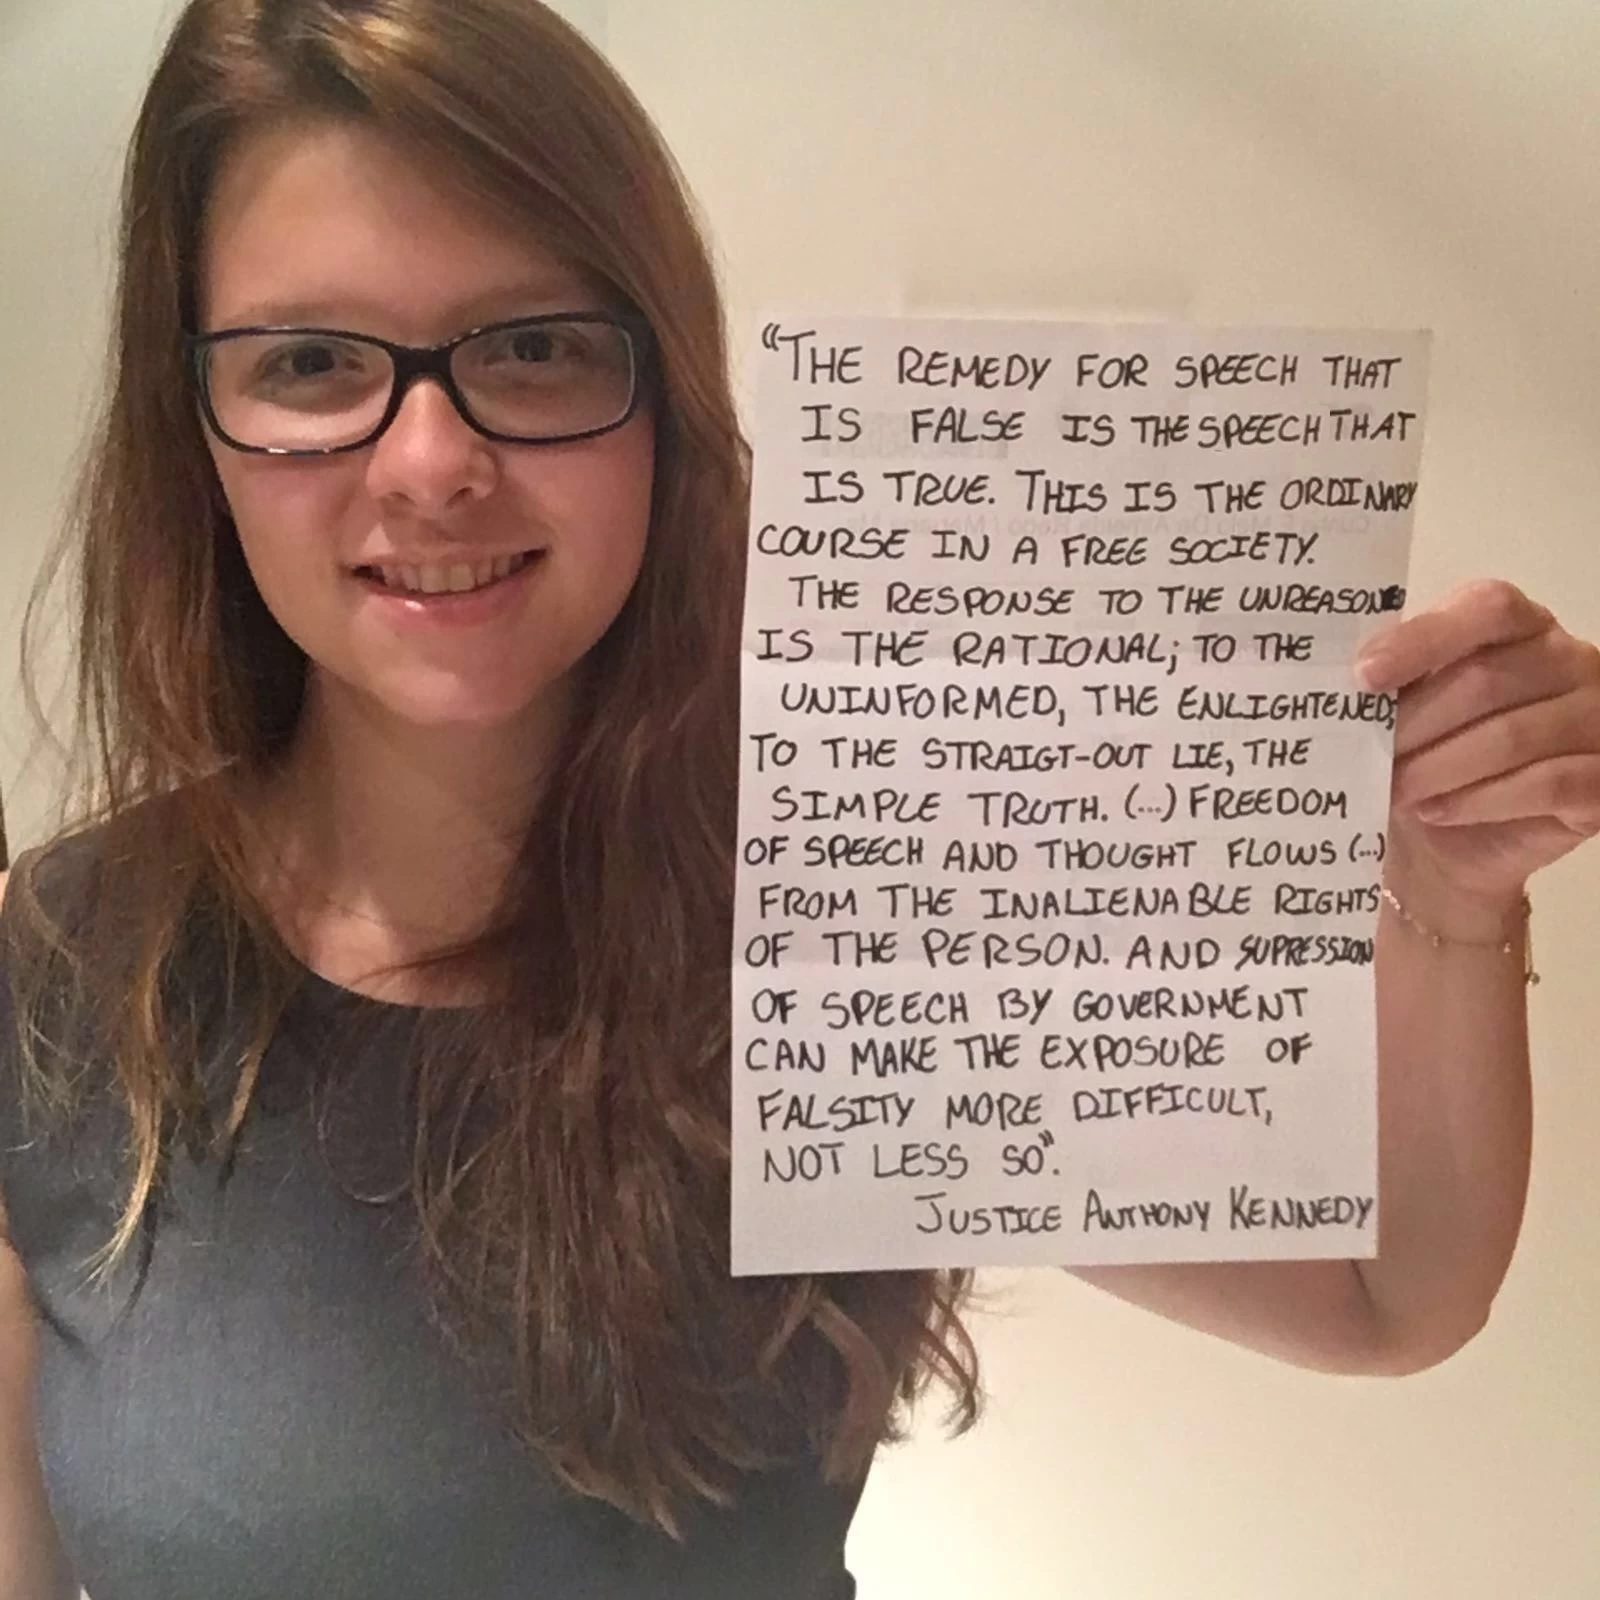 “THE REMEDY FOR SPEECH THAT
IS FALSE IS THE SPEECH THAT
IS TRUE. THIS IS THE ORDINARY
COURSE IN A FREE SOCIETY.
THE RESPONSE TO THE UNREASONED
IS THE RATIONAL; TO THE
UNINFORMED, THE ENLIGHTENED;
TO THE STRAIGT-OUT LIE, THE
SIMPLE TRUTH. (...) FREEDOM
OF SPEECH AND THOUGHT FLOWS (...)
FROM THE INALIENABLE RIGHTS
OF THE PERSON. AND SUPRESSION
OF SPEECH BY GOVERNMENT
CAN MAKE THE EXPOSURE OF
FALSITY MORE DIFFICULT,
NOT LESS SO”.
JUSTICE ANTHONY KENNEDY